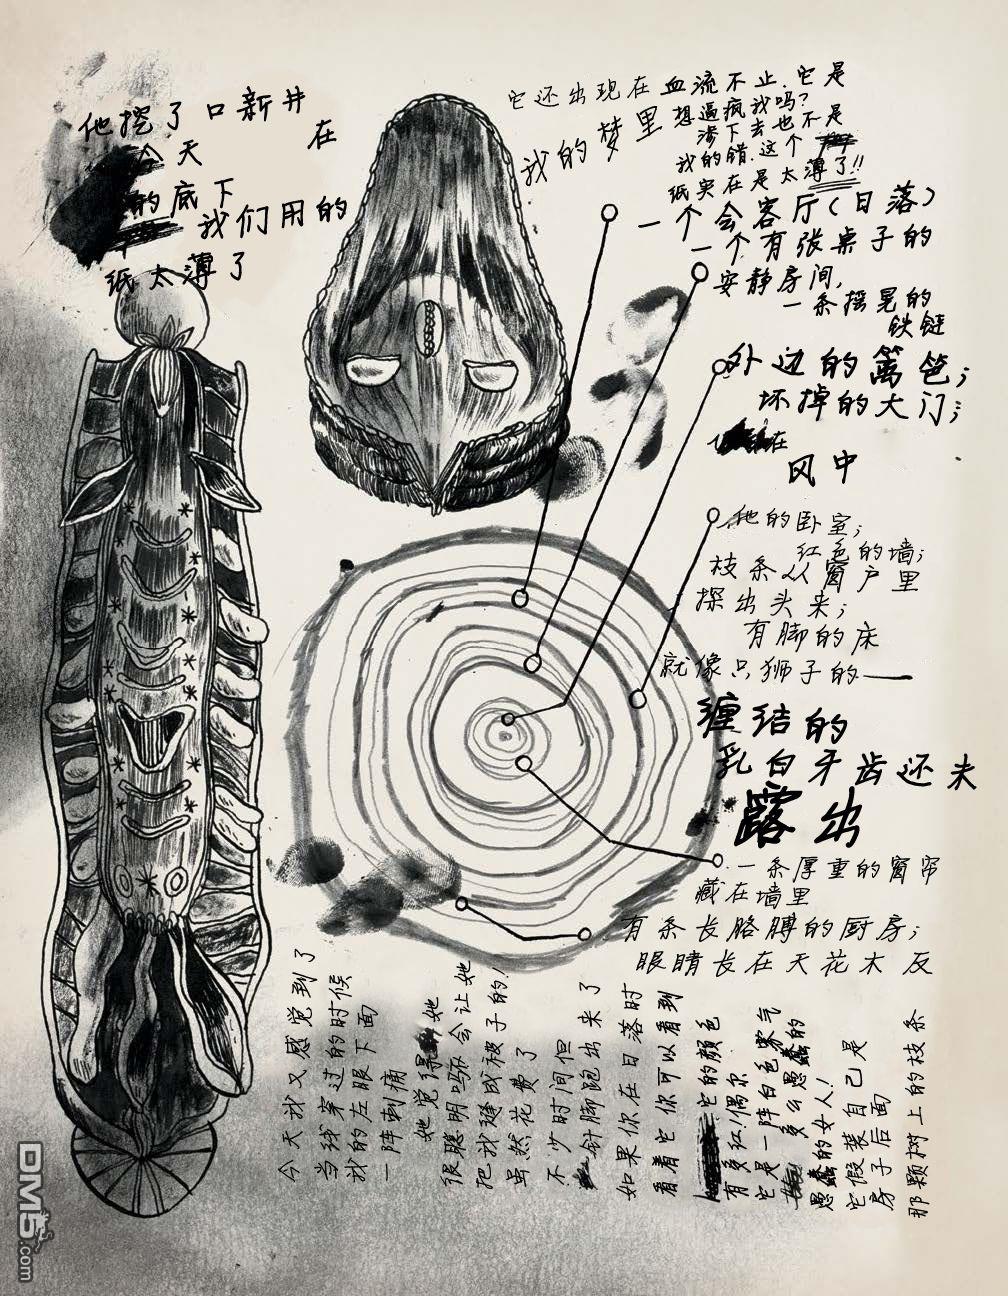 他挖了口新井
今天 在
的底下
我们用的
纸太薄了
它还出现在
我的梦里
血流不止.它是
想逼疯我吗?
渗下去也不是
我的错.这个
纸实在是太薄了!!
一个会客厅(日落)
一个有张桌子的
安静房间,
一条摇晃的
铁链
外边的篱笆;
坏掉的大门;
在
风中
他的卧室;
红色的墙;
枝条从窗户里
探出头来;
有脚的床
就像只狮子的——
缠结的
乳白牙齿还未
露出
一条厚重的窗帘
藏在墙里
有条长胳膊的厨房;
眼睛长在天花木反
今天我又感觉到了
当线穿过的时候
我的左眼下面
一阵刺痛
她觉得 她
很聪明吗你会让她
把我缝成被子的!
虽然花费了
不少时间但
针脚跑出来了
如果你在日落时
看着它你可以看到
它的颜色
有多红!偶尔
它是一阵白色雾气
多么愚蠢的
愚蠢的女人!
它假装自己是
房子后面
那颗树上的枝条
DM5.com